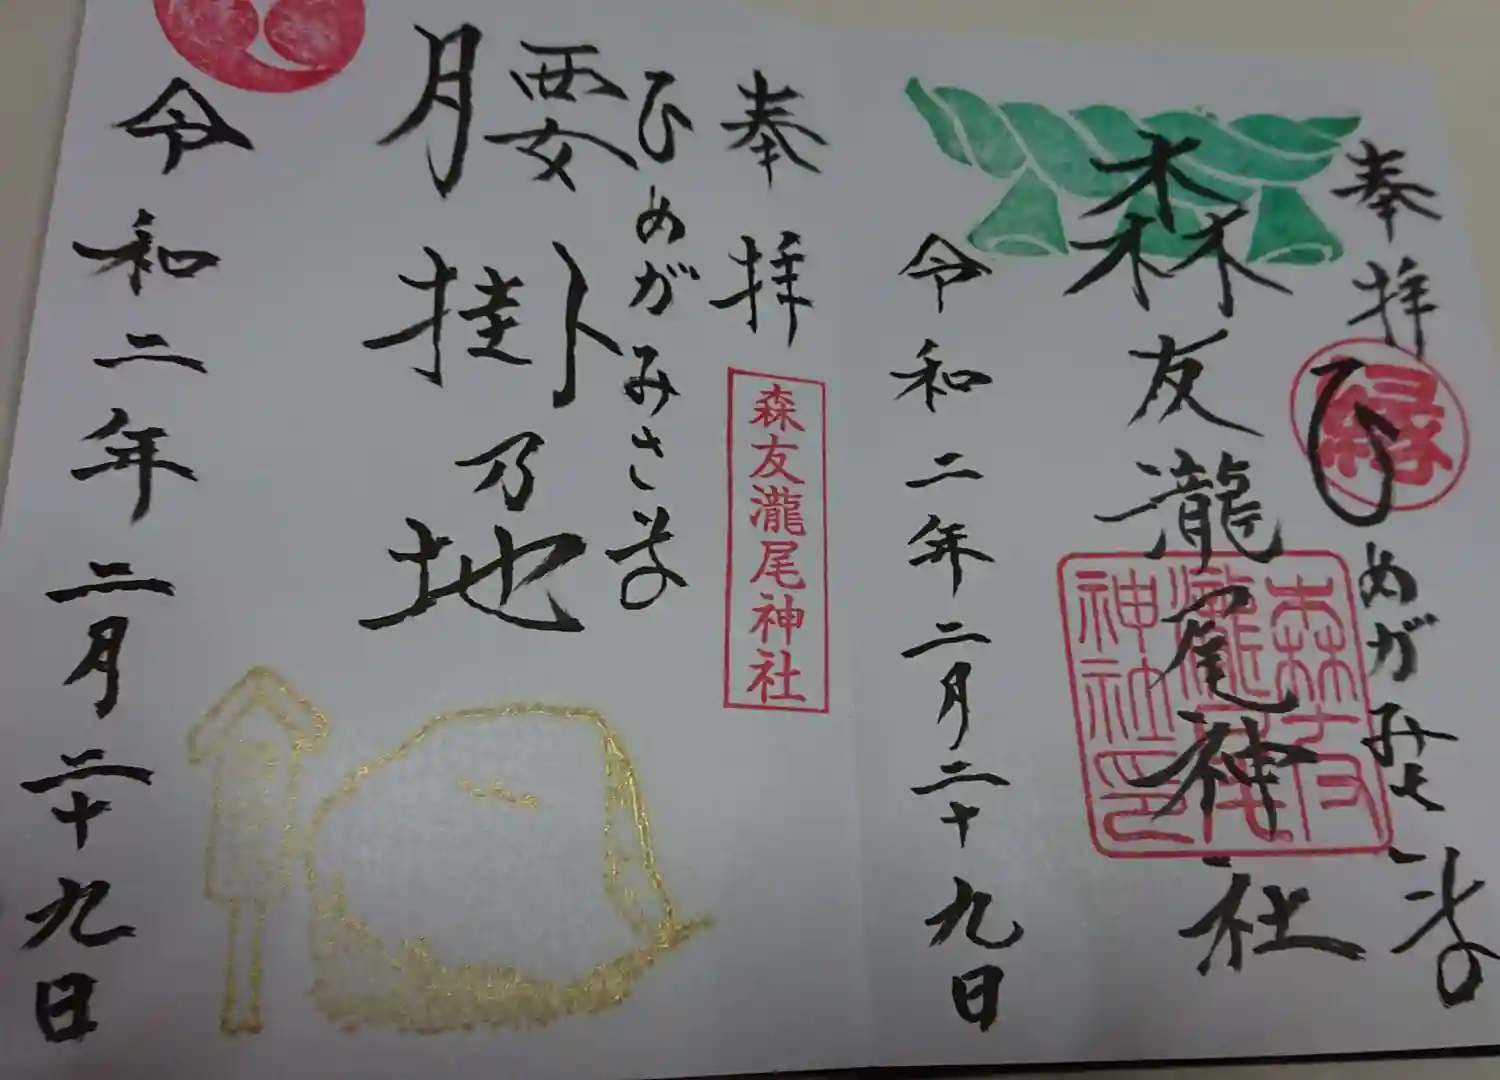 奉拝
縁
ひめがみさま
森友瀧尾神社
森友瀧尾神社印
令和二年二月二十九日
奉拝
森友瀧尾神社
ひめがみさま
腰掛乃地
令和二年二月二十九日